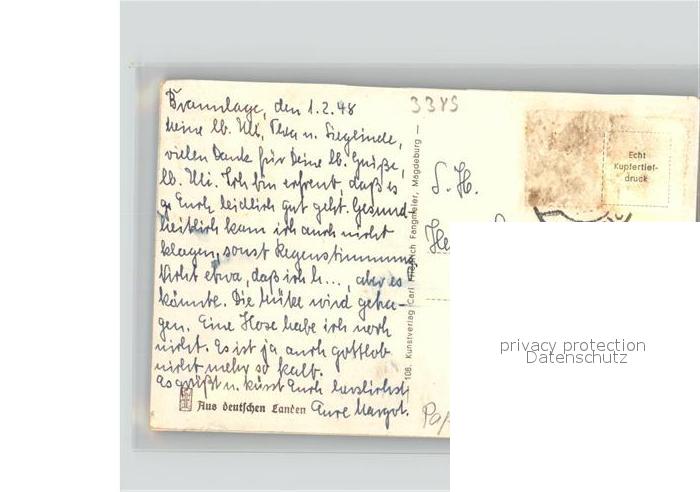 Braunlage, den 1.2.48
Meine lb. Uli, Thea u. Sieglinde,
vielen Dank für Deine lb. Grüße,
lb. Uli. Ich bin erfreut, daß es
Euch leidlich gut geht. Gesund-
heitlich kann ich auch nicht
klagen, sonst Regenstimmung
Nicht etwa, daß ich h..., aber es
könnte. Die Mütze wird getra-
gen. Eine Hose habe ich noch
nicht. Es ist ja auch gottlob
nicht mehr so kalt.
Es grüßt u. küsst Euch herzlichst
Eure Margot.
Aus deutschen Landen
3385
108. Kunstverlag Carl Friedrich Fangmeier, Magdeburg —
Echt
Kupfertief-
druck
S. H.
privacy protection
Datenschutz